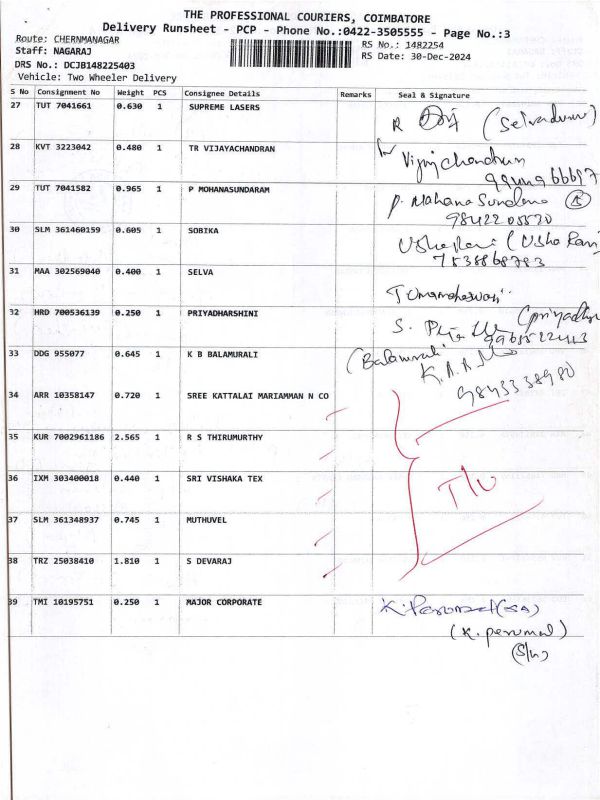 THE PROFESSIONAL COURIERS, COIMBATORE
Delivery Runsheet - PCP - Phone No.:0422-3505555 - Page No.:3
Route: CHERNMANAGAR
RS No.: 1482254
Staff: NAGARAJ
RS Date: 30-Dec-2024
DRS No.: DCJB148225403
Vehicle: Two Wheeler Delivery
S No Consignment No Weight PCS Consignee Details Remarks Seal & Signature
27 TUT 7041661 0.630 1 SUPREME LASERS
R (Selvadurai)
28 KVT 3223042 0.480 1 TR VIJAYACHANDRAN
for Vijay Chandran
29 TUT 7041582 0.965 1 P MOHANASUNDARAM
P. Mahana Sundara
9842205520
30 SLM 361460159 0.605 1 SOBIKA
Usha Rani (Usha Rani)
7538868783
31 MAA 302569040 0.400 1 SELVA
T Umamaheswari
32 HRD 700536139 0.250 1 PRIYADHARSHINI
S. (priyadhar
33 DDG 955077 0.645 1 K B BALAMURALI
(Balamurali
9843338980
34 ARR 10358147 0.720 1 SREE KATTALAI MARIAMMAN N CO
35 KUR 7002961186 2.565 1 R S THIRUMURTHY
36 IXM 303400018 0.440 1 SRI VISHAKA TEX
T/U
37 SLM 361348937 0.745 1 MUTHUVEL
38 TRZ 25038410 1.810 1 S DEVARAJ
39 TMI 10195751 0.250 1 MAJOR CORPORATE
K. Perumal (SA)
(K. perumal)
(S/w)